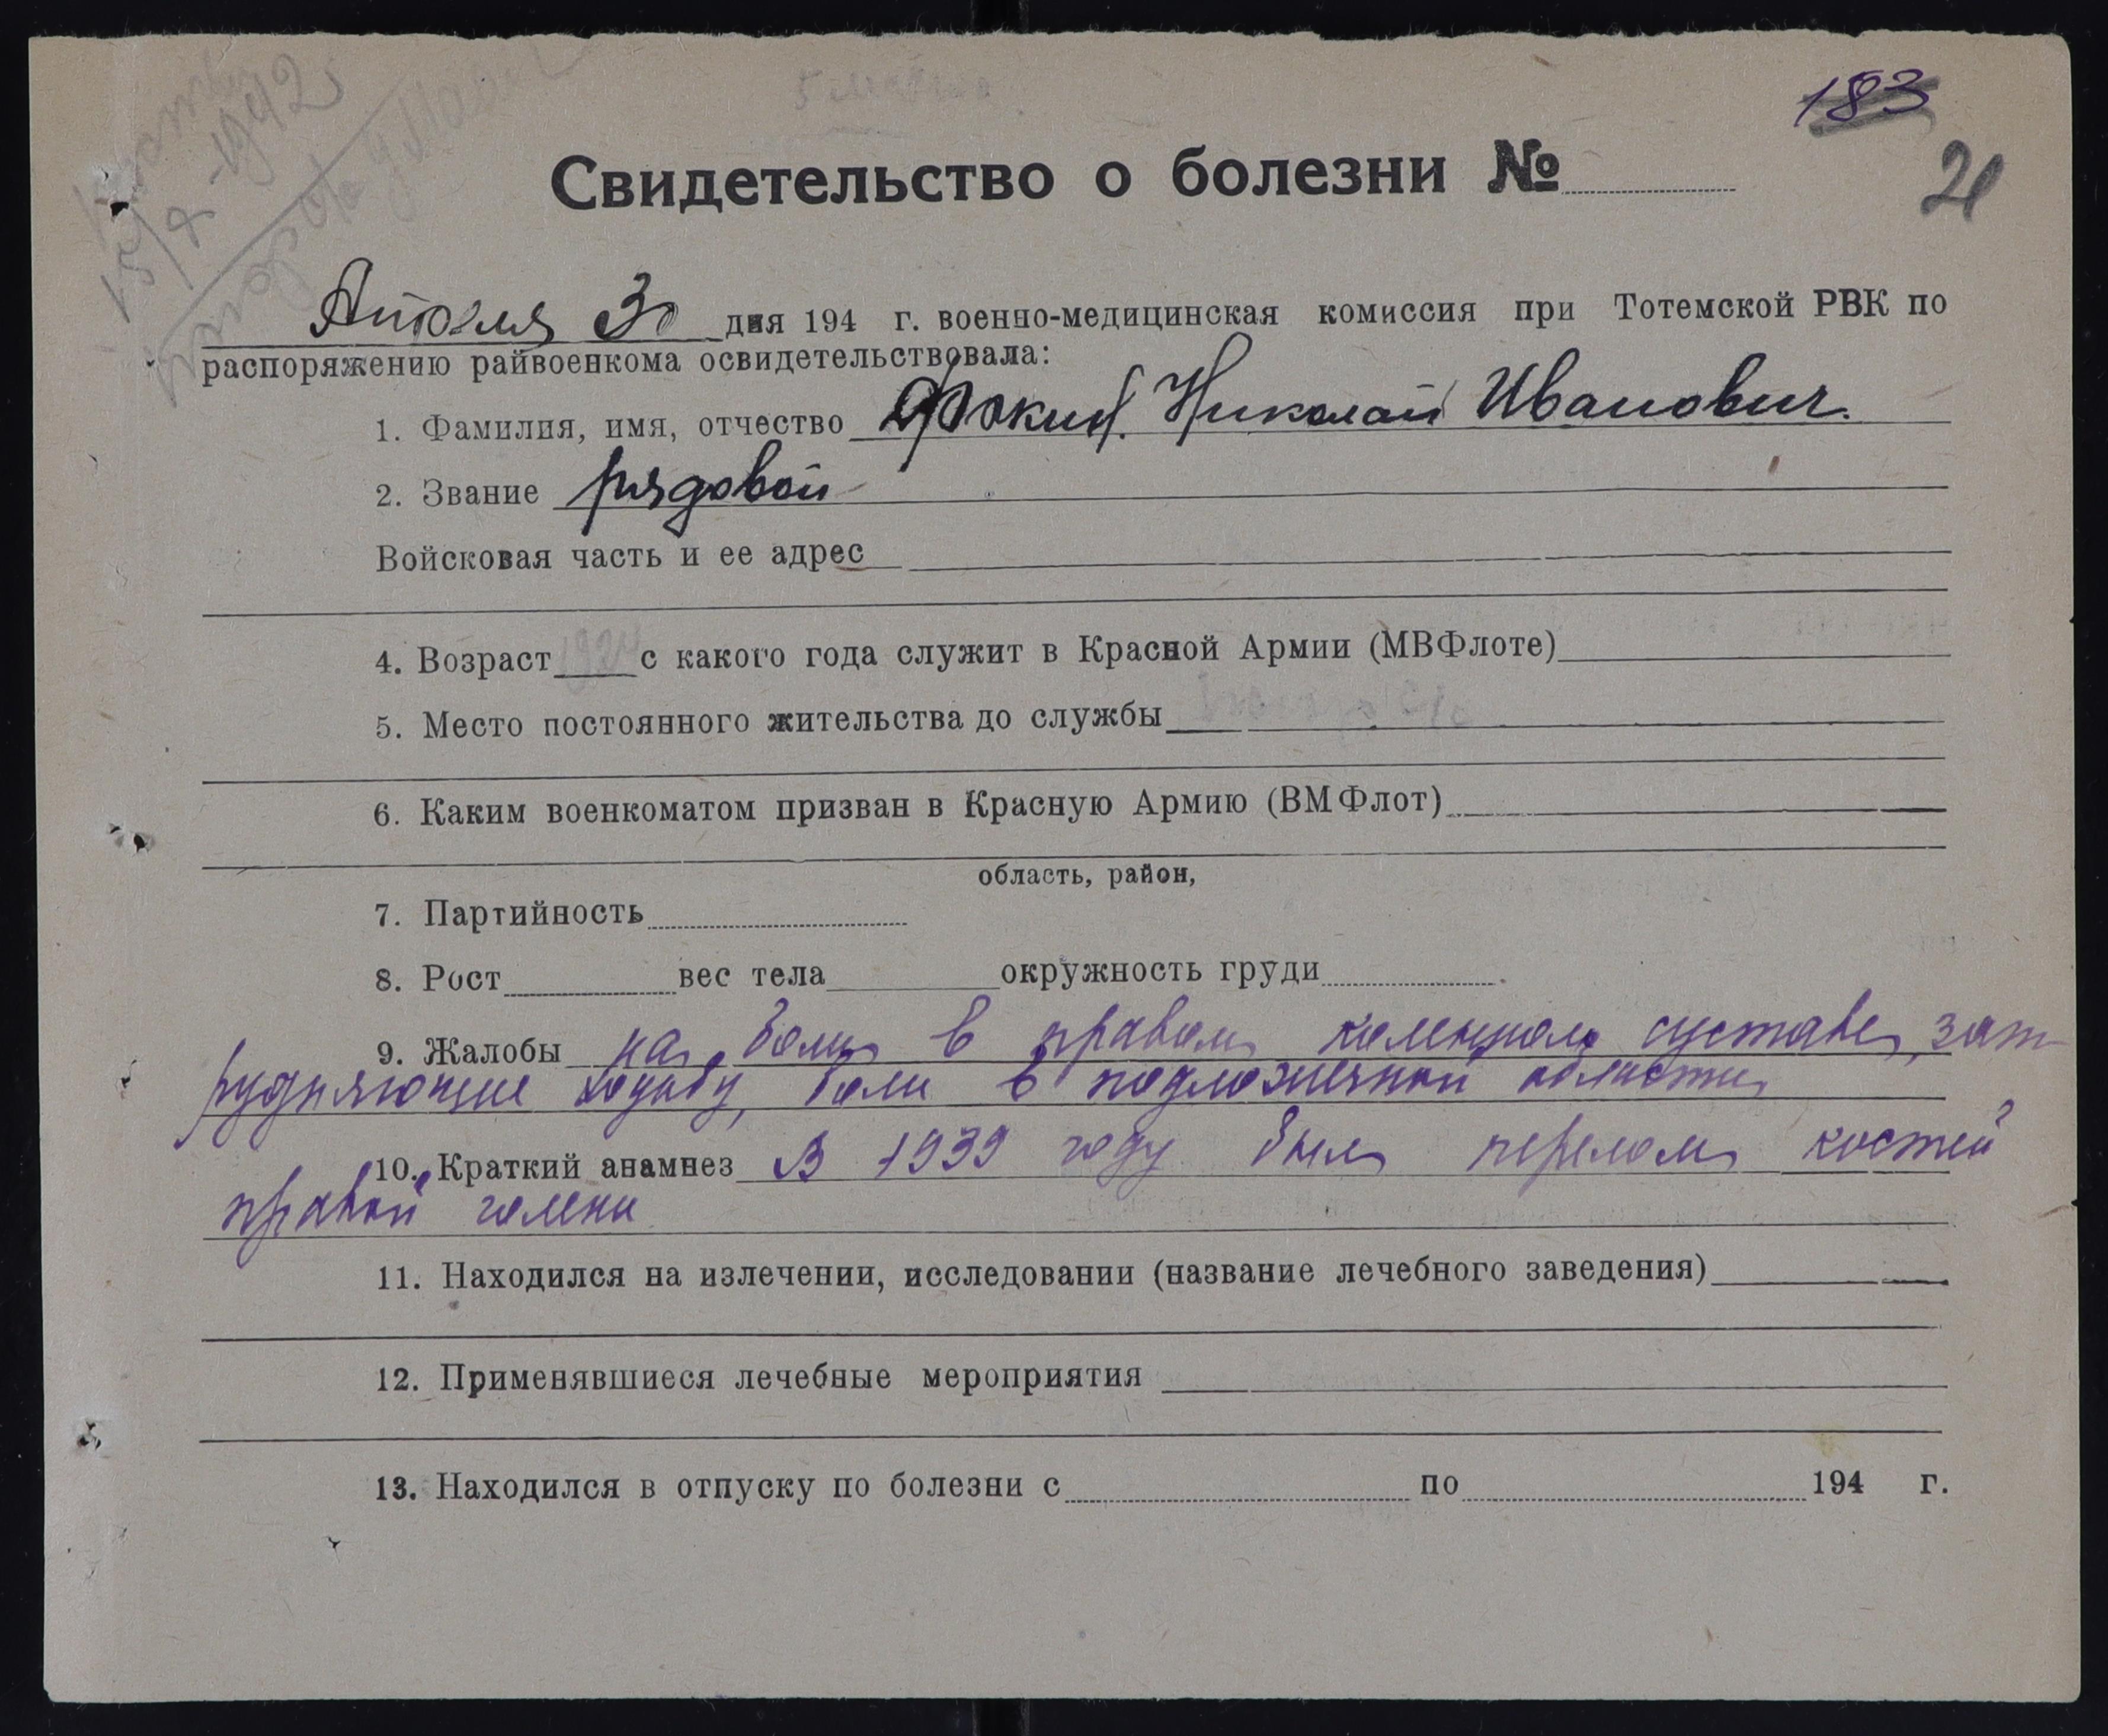 183
21
Свидетельство о болезни №
Апреля 30 дня 194 г. военно-медицинская комиссия при Тотемской РВК по
распоряжению райвоенкома освидетельствовала:
1. Фамилия, имя, отчество Фокин Николай Иванович.
2. Звание рядовой
Войсковая часть и ее адрес
4. Возраст 1924 с какого года служит в Красной Армии (МВФлоте)
5. Место постоянного жительства до службы
6. Каким военкоматом призван в Красную Армию (ВМФлот)
область, район,
7. Партийность
8. Рост вес тела окружность груди
9. Жалобы на боли в правом коленном суставе, зат-
рудняющие ходьбу, боли в подложечной области
10. Краткий анамнез В 1939 году был перелом костей
правой голени
11. Находился на излечении, исследовании (название лечебного заведения)
12. Применявшиеся лечебные мероприятия
13. Находился в отпуску по болезни с по 194 г.